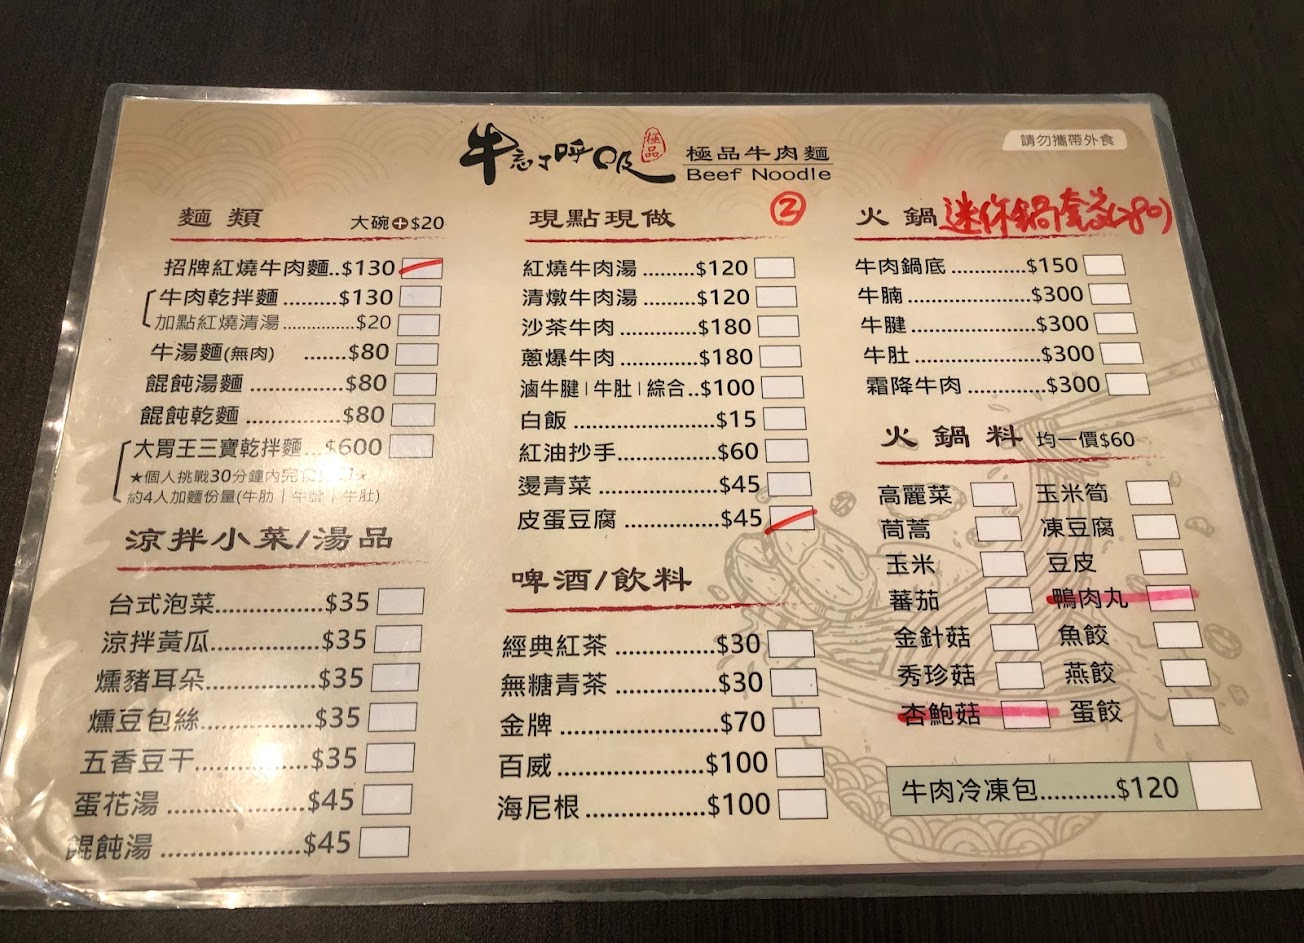 牛忘了呼吸
極品
極品牛肉麵
Beef Noodle
請勿攜帶外食
麵類 大碗+$20
招牌紅燒牛肉麵..$130
牛肉乾拌麵.........$130
加點紅燒清湯...............$20
牛湯麵(無肉) .......$80
餛飩湯麵..............$80
餛飩乾麵..............$80
大胃王三寶乾拌麵...$600
★個人挑戰30分鐘內完食
約4人加麵份量(牛肋|牛腱|牛肚)
涼拌小菜/湯品
台式泡菜..............$35
涼拌黃瓜..............$35
燻豬耳朵..............$35
燻豆包絲..............$35
五香豆干..............$35
蛋花湯..................$45
餛飩湯..................$45
現點現做 ②
紅燒牛肉湯........$120
清燉牛肉湯........$120
沙茶牛肉...........$180
蔥爆牛肉...........$180
滷牛腱|牛肚|綜合..$100
白飯....................$15
紅油抄手.............$60
燙青菜................$45
皮蛋豆腐.............$45
啤酒/飲料
經典紅茶.............$30
無糖青茶.............$30
金牌....................$70
百威..................$100
海尼根...............$100
火鍋 迷你鍋套餐(280)
牛肉鍋底.............$150
牛腩....................$300
牛腱....................$300
牛肚....................$300
霜降牛肉............$300
火鍋料 均一價$60
高麗菜 玉米筍
茼蒿 凍豆腐
玉米 豆皮
蕃茄 鴨肉丸
金針菇 魚餃
秀珍菇 燕餃
杏鮑菇 蛋餃
牛肉冷凍包...........$120